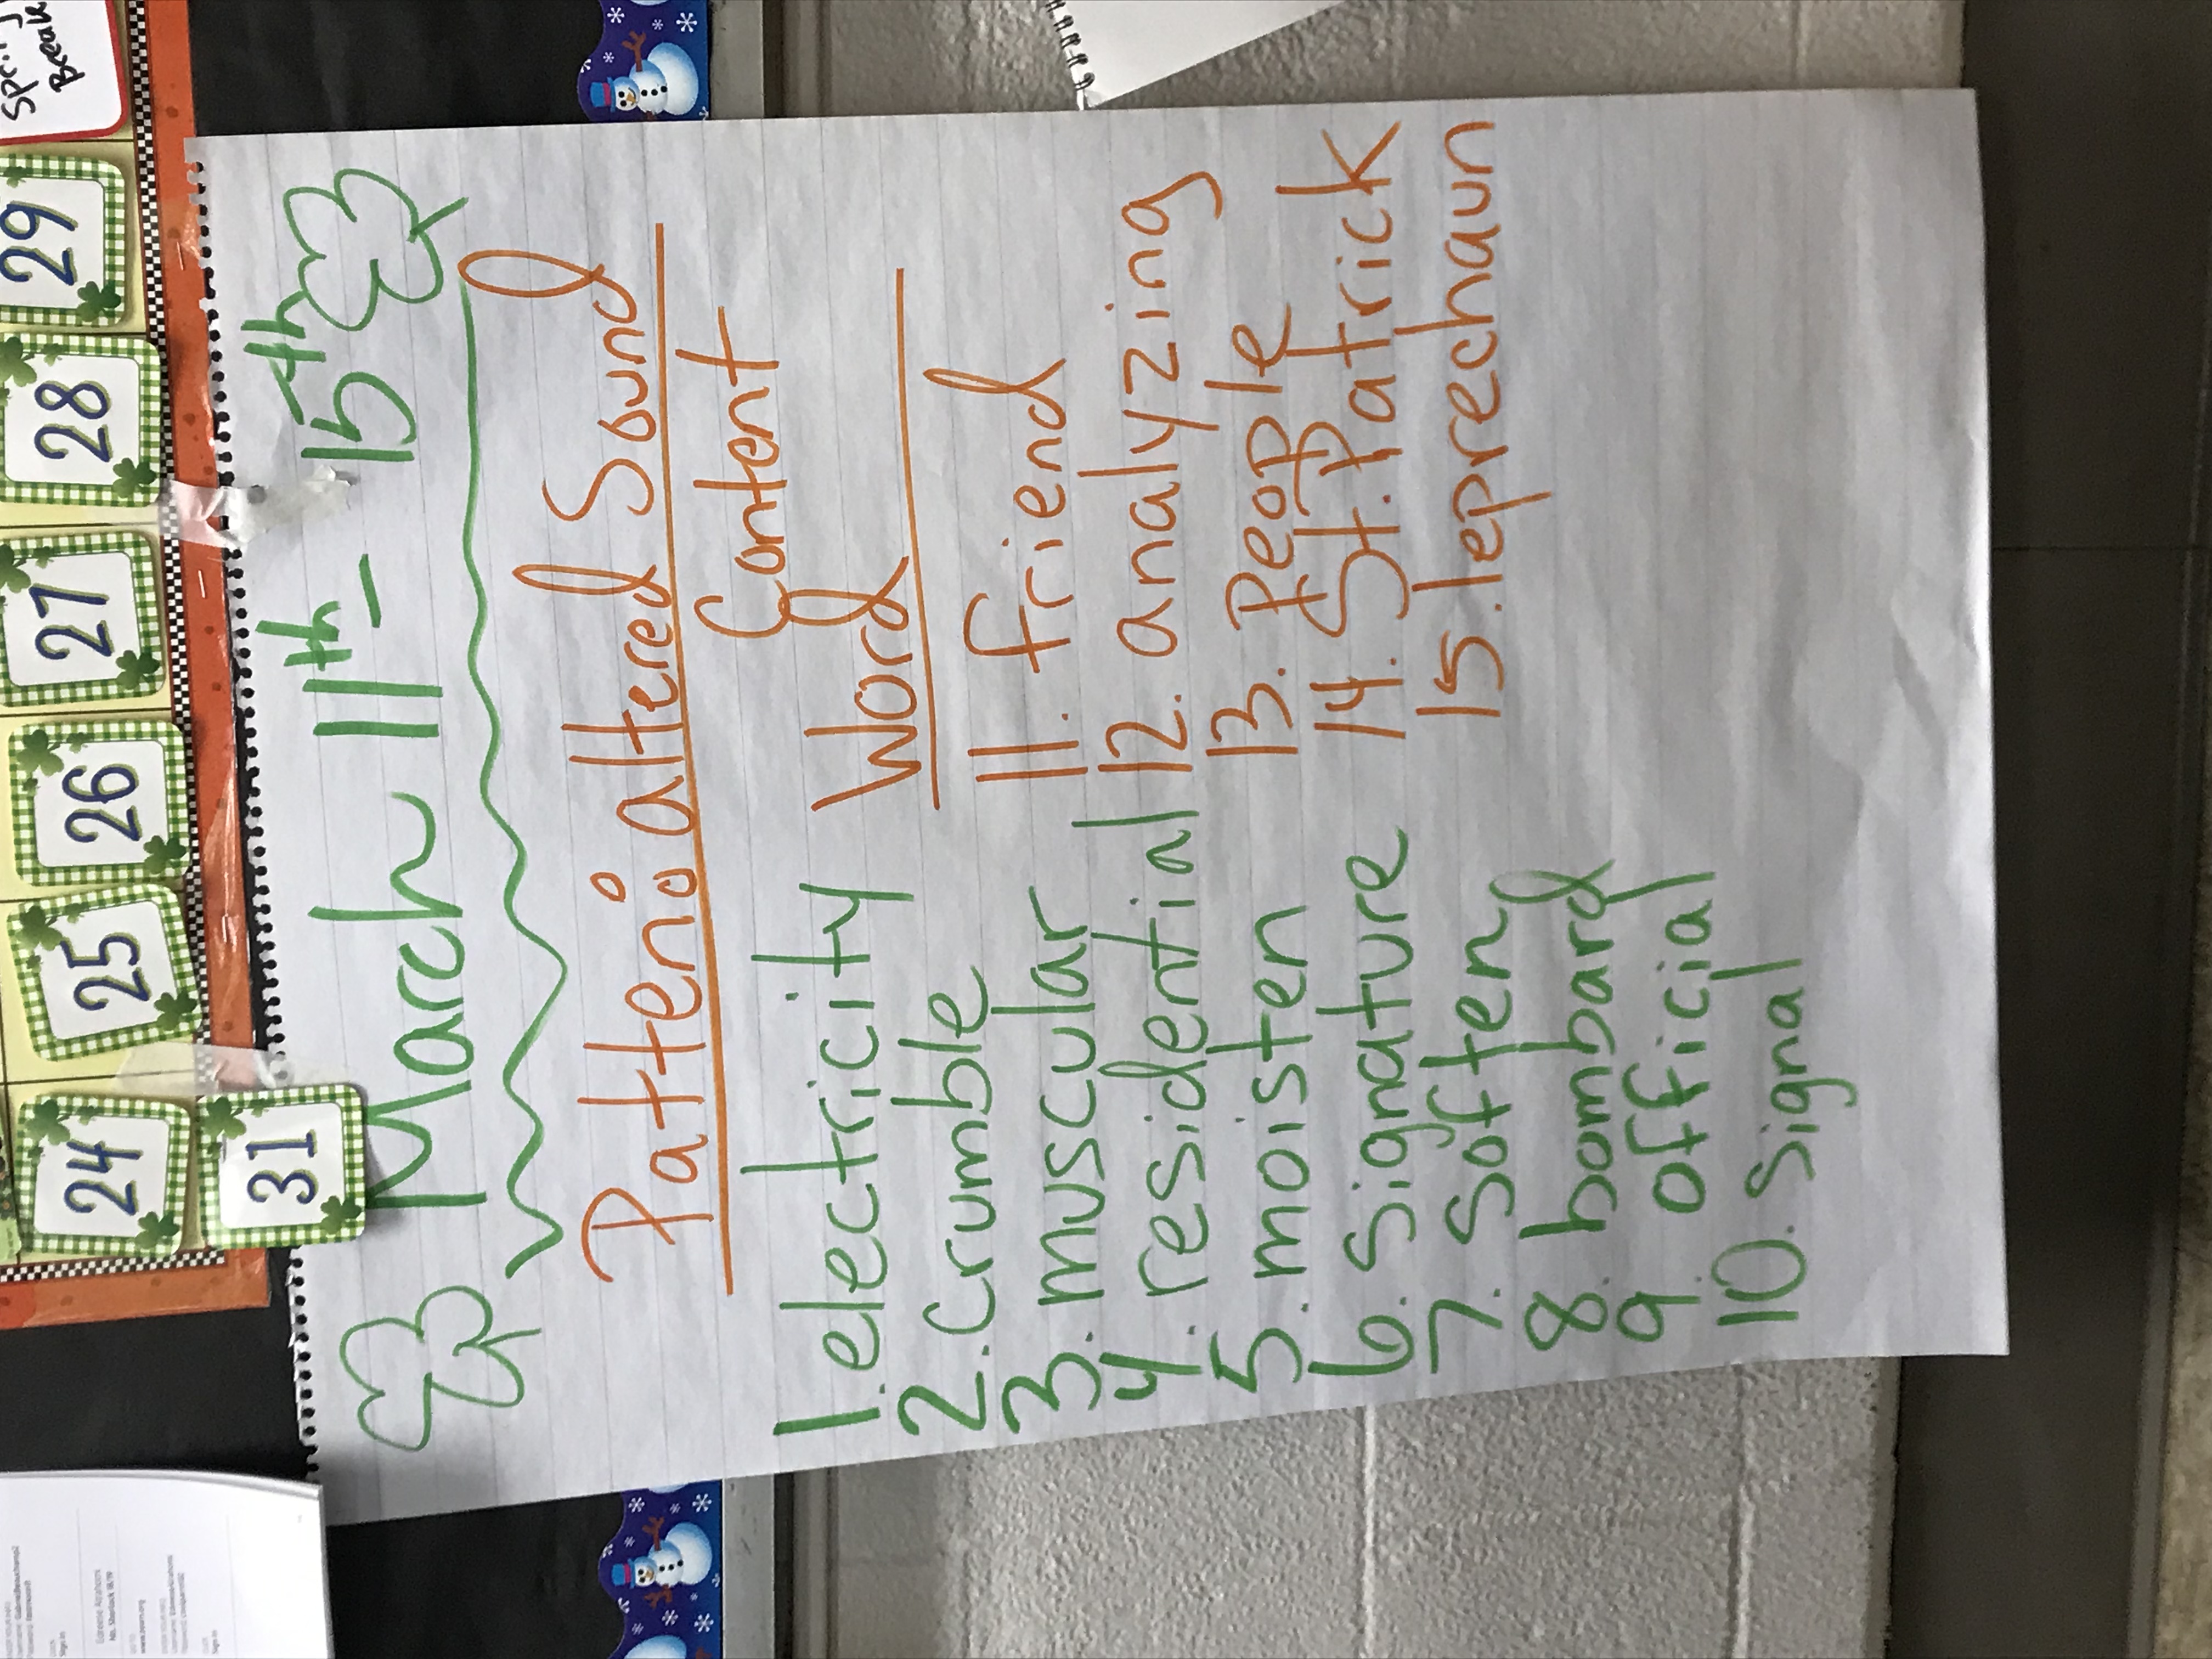 Spring
Break
24
25
26
27
28
29
31
March 11th - 15th
Pattern: altered Sound
1. electricity
2. crumble
3. muscular
4. residential
5. moisten
6. signature
7. soften
8. bombard
9. official
10. signal
Content
Word
11. friend
12. analyzing
13. People
14. St. Patrick
15. leprechaun